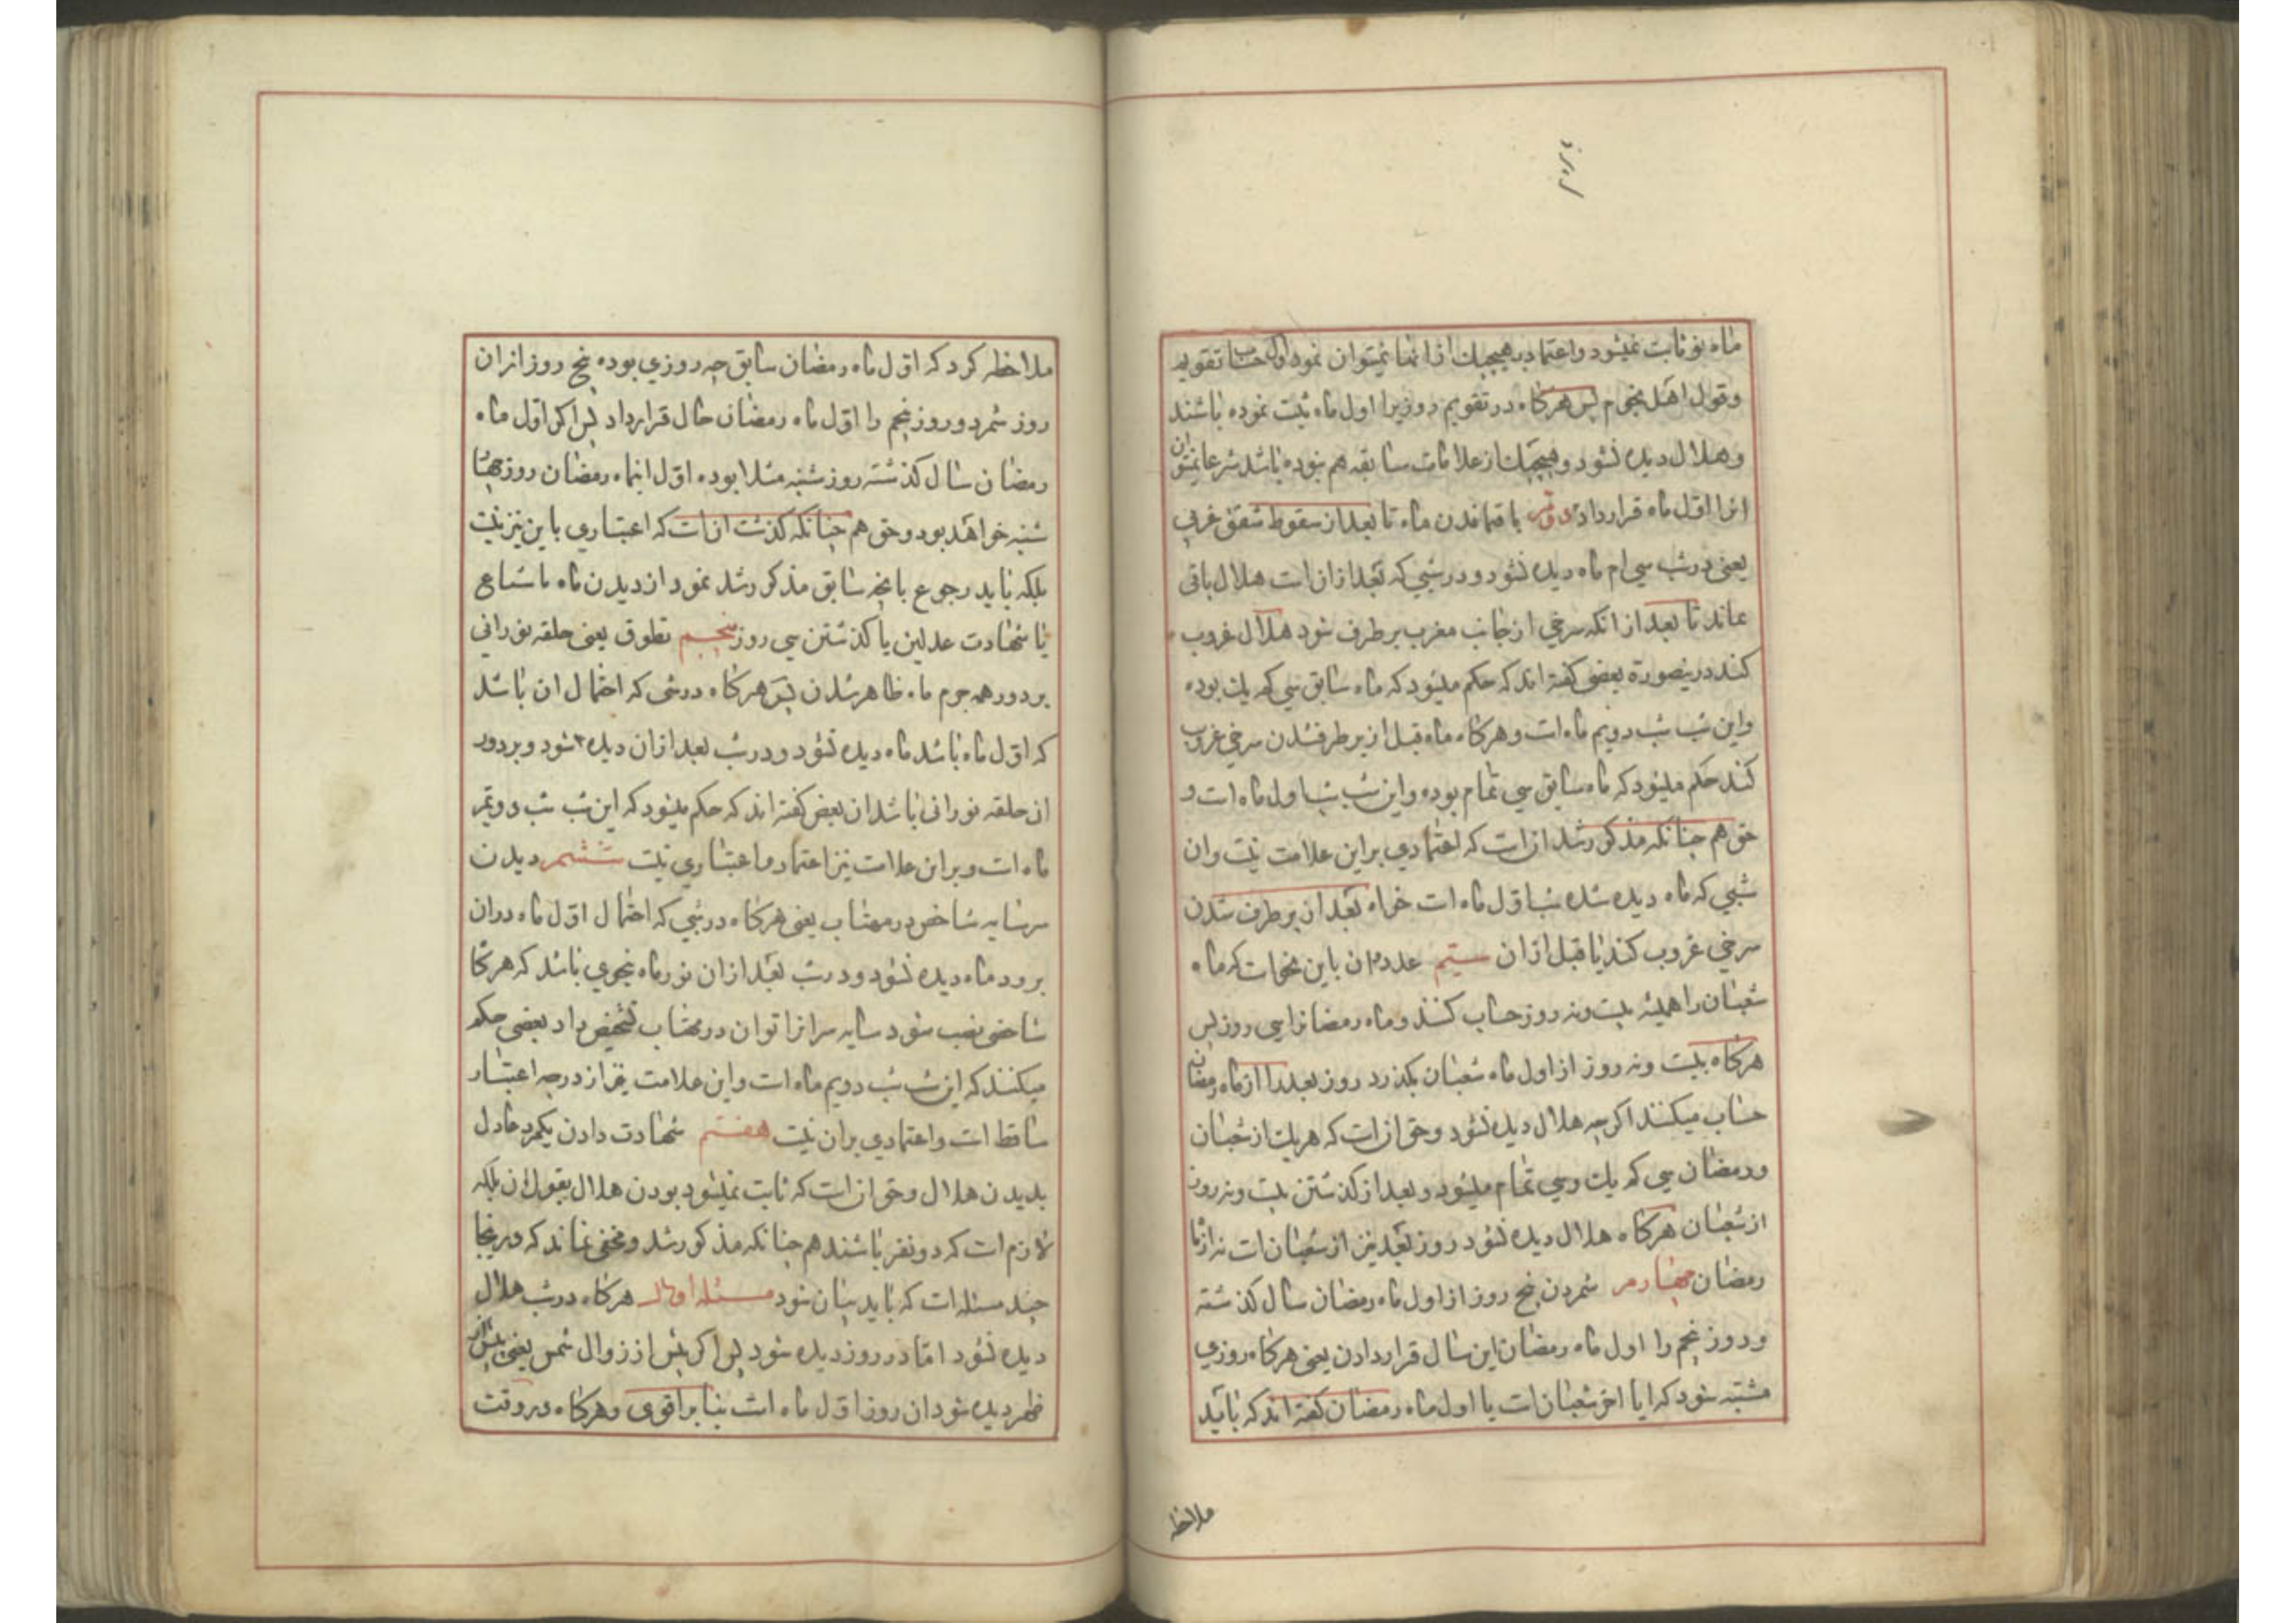 ماه نو ثابت نمیشود و اعتماد بر هیچیک از انها نمیتوان نمود اول حساب تقویم
و قول اهل نجوم پس هرکاه در تقویم روزیرا اول ماه ثبت نموده باشند
و هلال دیده نشود و هیچیک از علامات سابقه هم نبوده باشد شرعا نمیتوان
انرا اول ماه قرار داد دویم باقیماندن ماه تا بعد از سقوط شفق غربی
یعنی در شب سی ام ماه دیده نشود و در شبی که بعد از ان است هلال باقی
بماند تا بعد از انکه سرخی از جانب مغرب بر طرف شود هلال غروب
کند درینصورة بعضی کفته اند که حکم میشود که ماه سابق سی کم یک بوده
و این شب شب دویم ماه است و هرکاه ماه قبل از بر طرفشدن سرخی غروب
کند حکم میشود که ماه سابق سی تمام بوده و این شب شب اول ماه است و
حق هم چنانکه مذکور شد انست که اعتمادی بر این علامت نیست و ان
شبی که ماه دیده شده شب اول ماه است خواه بعد از بر طرف شدن
سرخی غروب کند یا قبل از ان سیّم عدد و ان باین نحو است که ماه
شعبان را همیشه بیست و نه روز حساب کنند و ماه رمضانرا سی روز پس
هرکاه بیست و نه روز از اول ماه شعبان بکذرد روز بعد را از ماه رمضان
حساب میکنند اکرچه هلال دیده نشود و حق انست که هر یک از شعبان
و رمضان سی کم یک و سی تمام میشود و بعد از کذشتن بیست و نه روز
از شعبان هرکاه هلال دیده نشود روز بعد نیز از شعبان است نه از
رمضان چهارم شمردن پنج روز از اول ماه رمضان سال کذشته
و روز پنجم را اول ماه رمضان این سال قرار دادن یعنی هرکاه روزی
مشتبه شود که ایا اخر شعبان است یا اول ماه رمضان کفته اند که باید
ملاحظه
ملاحظه کرد که اول ماه رمضان سابق چه روزی بوده پنج روز از ان
روز شمرد و روز پنجم را اول ماه رمضان حال قرار داد پس اکر اول ماه
رمضان سال کذشته روز شنبه مثلا بوده اول اینماه رمضان روز چهار
شنبه خواهد بود و حق هم چنانکه کذشت انست که اعتباری باین نیز نیست
بلکه باید رجوع بانچه سابق مذکور شد نمود از دیدن ماه یا شیاع
یا شهادت عدلین یا کذشتن سی روز پنجم تطوق یعنی حلقه نورانی
بر دور همه جرم ماه ظاهر شدن پس هرکاه در شبی که احتمال ان باشد
که اول ماه باشد ماه دیده نشود و در شب بعد از ان دیده شود و بر دور
ان حلقه نورانی باشد ان بعض کفته اند که حکم میشود که این شب شب دویم
ماه است و بر این علامت نیز اعتماد و اعتباری نیست ششم دیدن
سر سایه شاخص در مهتاب یعنی هرکاه در شبی که احتمال اول ماه در ان
برود ماه دیده نشود و در شب بعد از ان نور ماه بنحوی باشد که هرکاه
شاخصی نصب شود سایه سر انرا توان در مهتاب تشخیص داد بعضی حکم
میکنند که این شب شب دویم ماه است و این علامت نیز از درجه اعتبار
ساقط است و اعتمادی بر ان نیست هفتم شهادت دادن یکمرد عادل
بدیدن هلال و حق انست که ثابت نمیشود بودن هلال بقول ان بلکه
لازم است که دو نفر باشند هم چنانکه مذکور شد و مخفی نماند که در اینجا
چند مسئله است که باید بیان شود مسئله اولی هرکاه در شب هلال
دیده نشود امّا در روز دیده شود پس اکر پیش از زوال شمس یعنی پیش از
ظهر دیده شود ان روز اول ماه است بنا بر اقوی و هرکاه در وقت